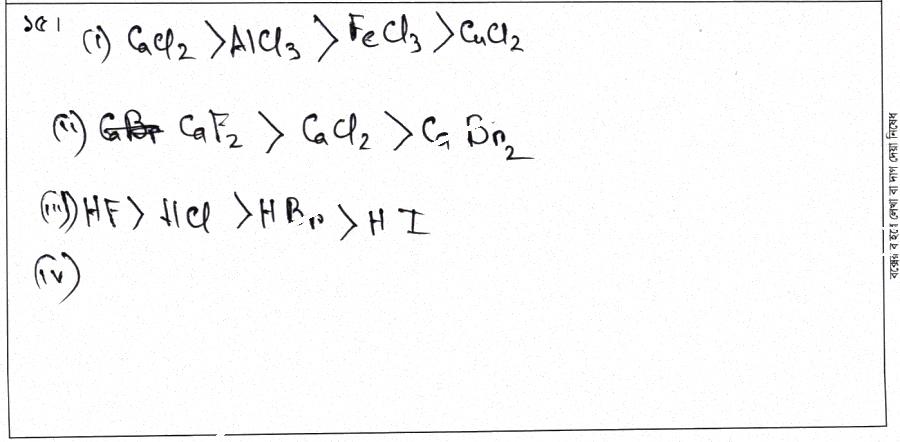 ১৫।
(i) CaCl₂ > AlCl₃ > FeCl₃ > CuCl₂
(ii) CaF₂ > CaCl₂ > CaBr₂
(iii) HF > HCl > HBr > HI
(iv)
বক্সের বাইরে লেখা বা দাগ দেয়া নিষেধ